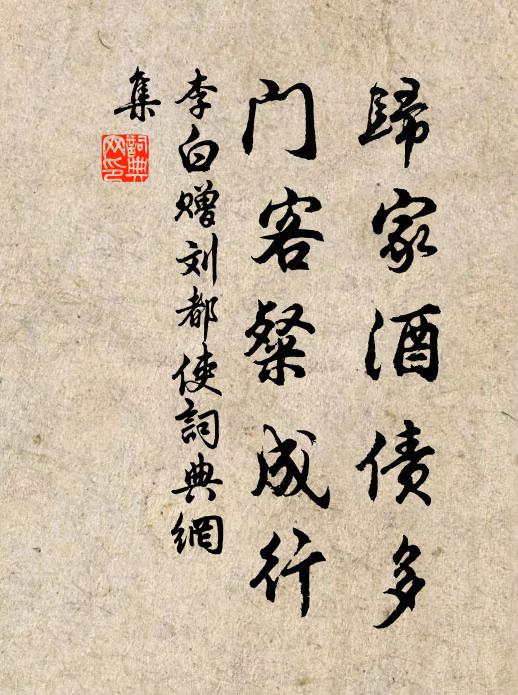 歸家酒债多
门客粲成行
李白赠刘都使詞典網
集
詞典网印